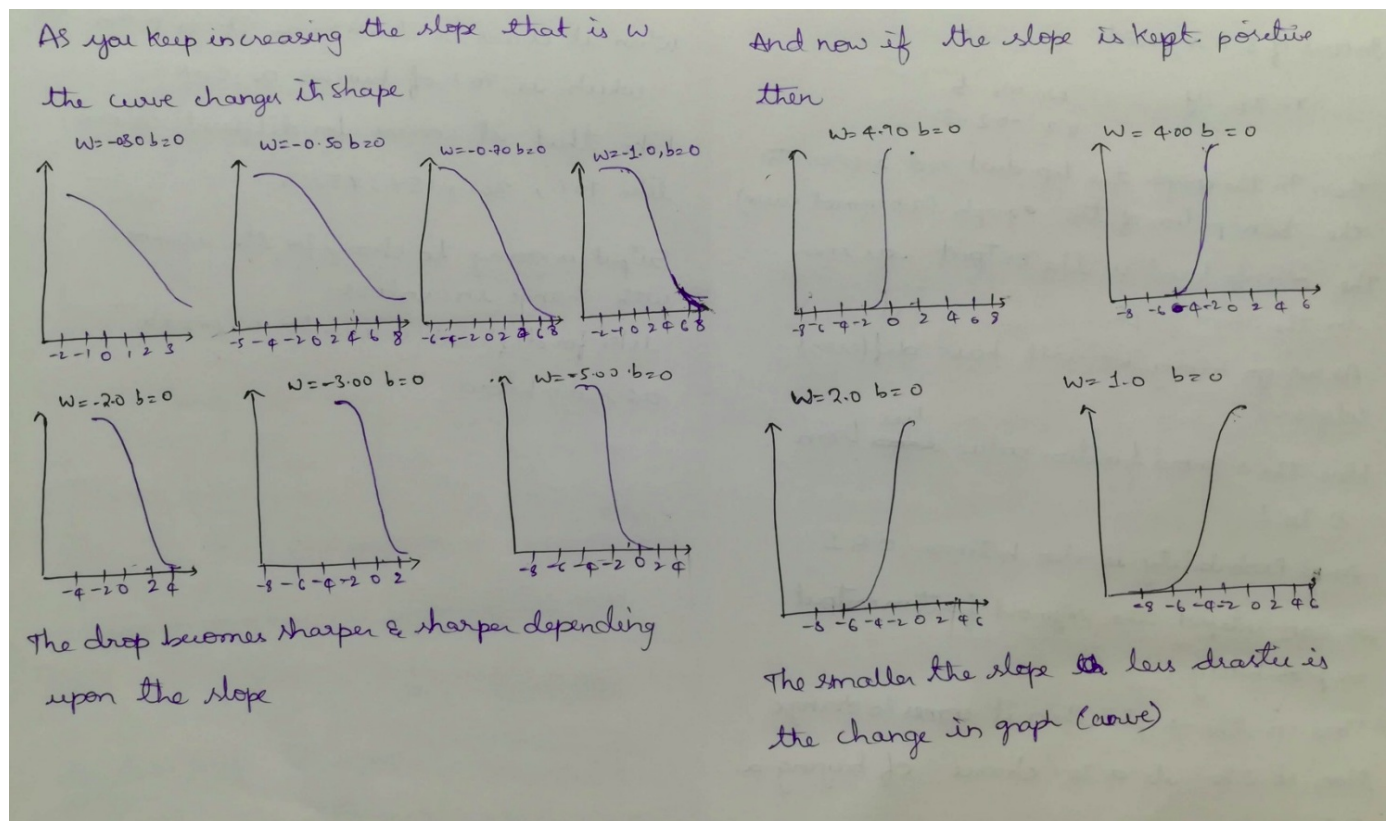 As you keep increasing the slope that is w
the curve changes its shape
W=-030 b=0
W=-0.50 b=0
W=-0.70 b=0
W=-1.0, b=0
-2 -1 0 1 2 3
-5 -4 -2 0 2 4 6 8
-6 -4 -2 0 2 4 6 8
-2 -1 0 2 4 6 8
W=-2.0 b=0
W=-3.00 b=0
W=-5.00 b=0
-4 -2 0 2 4
-8 -6 -4 -2 0 2
-8 -6 -4 -2 0 2 4
The drop becomes sharper & sharper depending
upon the slope
And now if the slope is kept positive
then
W= 4.70 b=0
W = 4.00 b = 0
-8 -6 -4 -2 0 2 4 6 8
-8 -6 -4 -2 0 2 4 6
W= 2.0 b=0
W= 1.0 b=0
-8 -6 -4 -2 0 2 4 6
-8 -6 -4 -2 0 2 4 6
The smaller the slope less drastic is
the change in graph (curve)